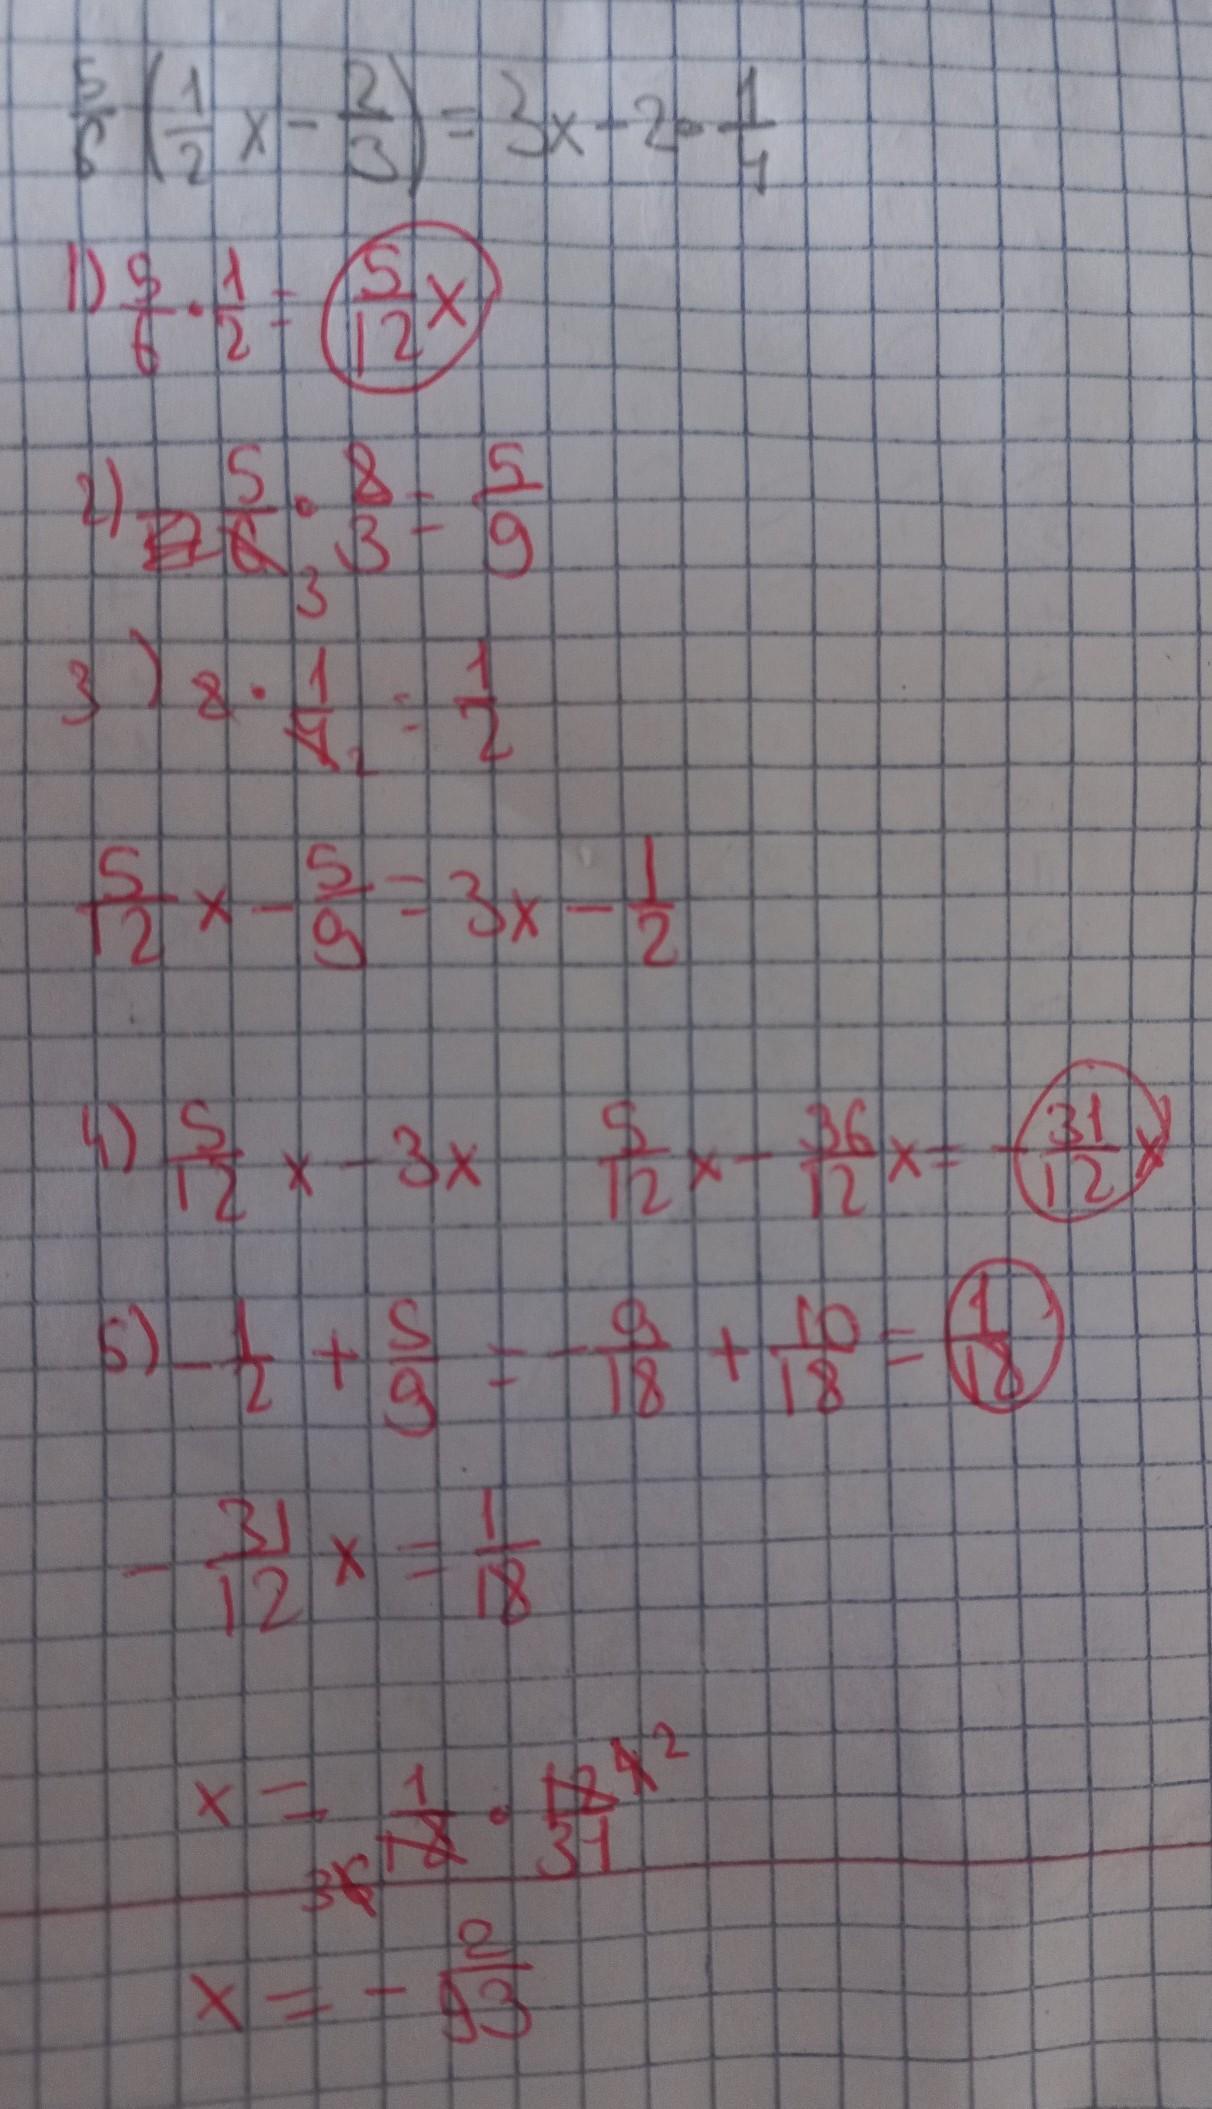 5/6 (1/2 x - 2/3) = 3x - 2 · 1/4
1) 5/6 · 1/2 = 5/12 x
2) 5/6 · 2/3 = 5/9
3
3) 2 · 1/4 2 = 1/2
5/12 x - 5/9 = 3x - 1/2
4) 5/12 x - 3x 5/12 x - 36/12 x = - 31/12 x
5) - 1/2 + 5/9 = - 9/18 + 10/18 = 1/18
- 31/12 x = 1/18
x = 1/18 · 12/31 2
3
x = - 2/93